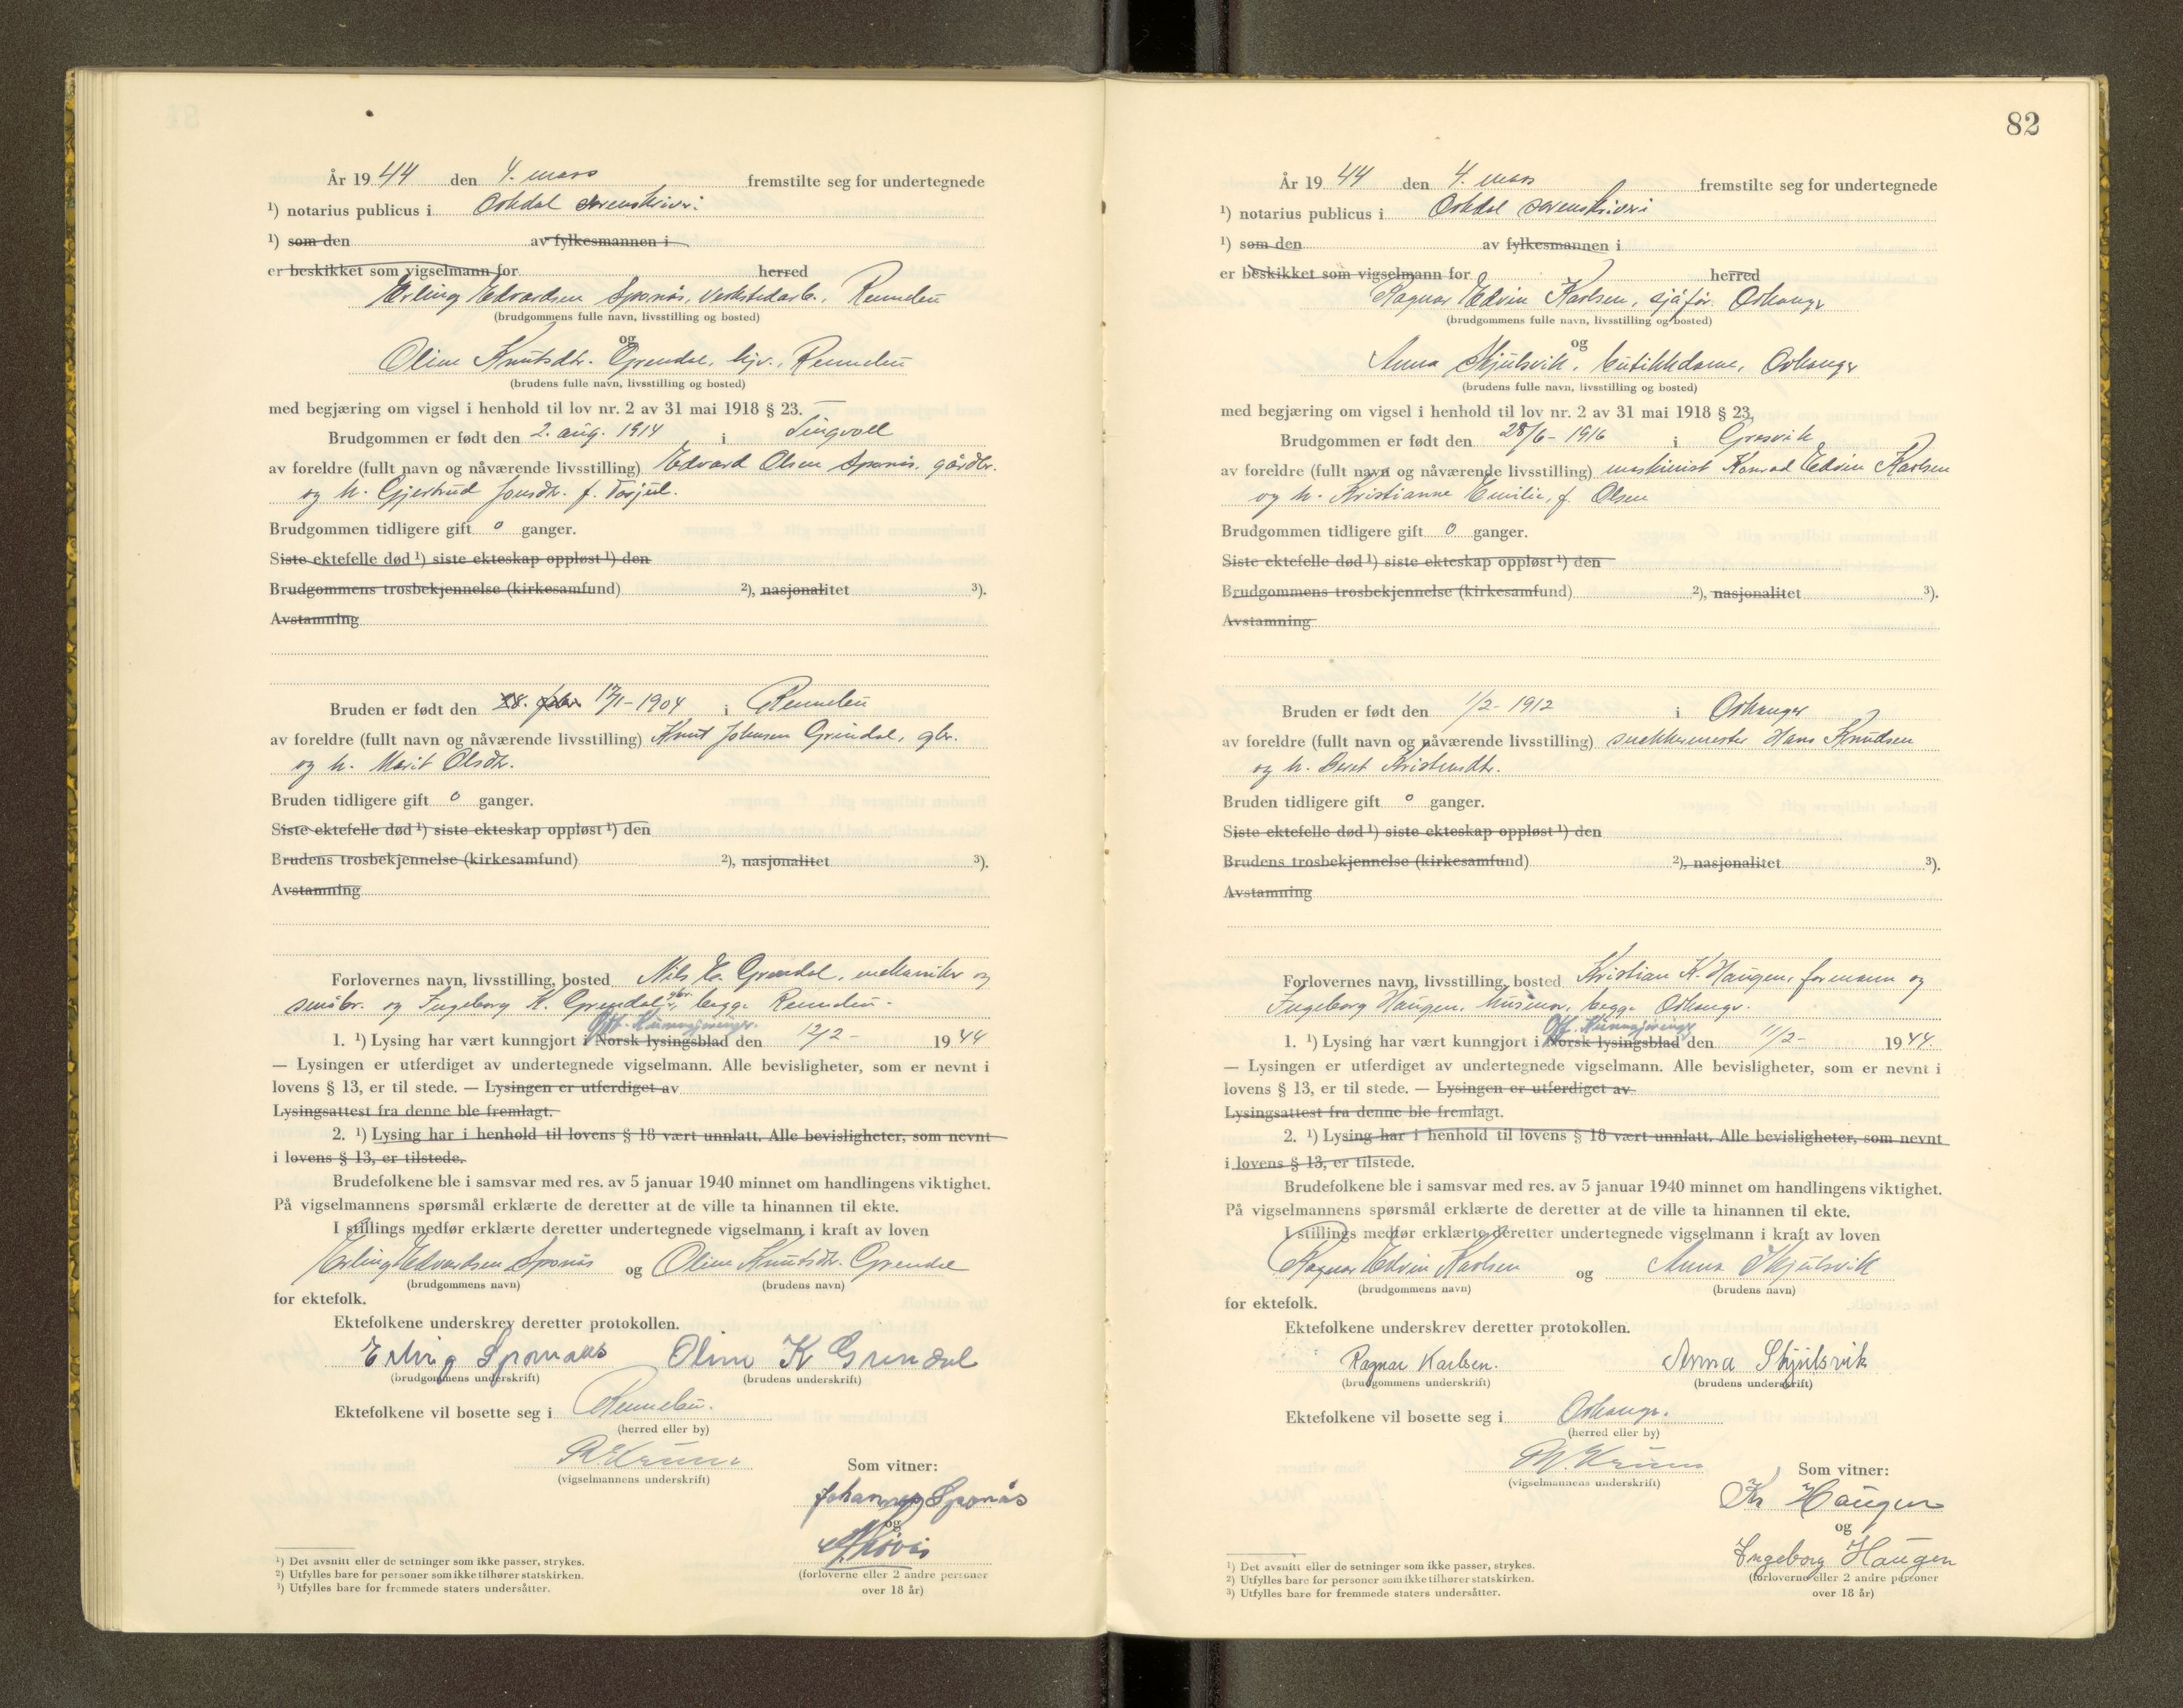 År 1944 den 4. mars fremstilte seg for undertegnede
¹) notarius publicus i Orkdal sorenskriveri
¹) som den av fylkesmannen i
er beskikket som vigselmann for herred
Erling Edvardsen Sponås, verkstedarb., Rennebu
(brudgommens fulle navn, livsstilling og bosted)
og
Oline Knutsdtr. Grendal, hjv., Rennebu
(brudens fulle navn, livsstilling og bosted)
med begjæring om vigsel i henhold til lov nr. 2 av 31 mai 1918 § 23.
Brudgommen er født den 2. aug. 1914 i Tingvoll
av foreldre (fullt navn og nåværende livsstilling) Edvard Olsen Sponås, gårdbr.
og h. Gjertrud Jonsdtr. f. Torjul.
Brudgommen tidligere gift 0 ganger.
Siste ektefelle død ¹) siste ekteskap oppløst ¹) den
Brudgommens trosbekjennelse (kirkesamfund) ²), nasjonalitet ³).
Avstamning
Bruden er født den 28. febr. 17/1-1904 i Rennebu
av foreldre (fullt navn og nåværende livsstilling) Knut Johnsen Grindal, gbr.
og h. Marit Olsdtr.
Bruden tidligere gift 0 ganger.
Siste ektefelle død ¹) siste ekteskap oppløst ¹) den
Brudens trosbekjennelse (kirkesamfund) ²), nasjonalitet ³).
Avstamning
Forlovernes navn, livsstilling, bosted Nils K. Grendal, mekaniker og
småbr. og Ingeborg K. Grendal, gbr. begge Rennebu.
Off. Kunngjøringer.
1. ¹) Lysing har vært kunngjort i Norsk lysingsblad den 12/2- 1944
— Lysingen er utferdiget av undertegnede vigselmann. Alle bevisligheter, som er nevnt i
lovens § 13, er til stede. — Lysingen er utferdiget av
Lysingsattest fra denne ble fremlagt.
2. ¹) Lysing har i henhold til lovens § 18 vært unnlatt. Alle bevisligheter, som nevnt
i lovens § 13, er tilstede.
Brudefolkene ble i samsvar med res. av 5 januar 1940 minnet om handlingens viktighet.
På vigselmannens spørsmål erklærte de deretter at de ville ta hinannen til ekte.
I stillings medfør erklærte deretter undertegnede vigselmann i kraft av loven
Erling Edvardsen Sponås og Oline Knutsdtr. Grendal
(brudgommens navn) (brudens navn)
for ektefolk.
Ektefolkene underskrev deretter protokollen.
Erling Sponaas Oline K Grendal
(brudgommens underskrift) (brudens underskrift)
Ektefolkene vil bosette seg i Rennebu.
(herred eller by)
(vigselmannens underskrift)
Som vitner:
Johannes Sponås
og
(forloverne eller 2 andre personer
over 18 år)
¹) Det avsnitt eller de setninger som ikke passer, strykes.
²) Utfylles bare for personer som ikke tilhører statskirken.
³) Utfylles bare for fremmede staters undersåtter.
82
År 1944 den 4. mars fremstilte seg for undertegnede
¹) notarius publicus i Orkdal sorenskriveri
¹) som den av fylkesmannen i
er beskikket som vigselmann for herred
Ragnar Edvin Karlsen, sjåfør, Orkanger
(brudgommens fulle navn, livsstilling og bosted)
og
Anna Skjulsvik, butikkdame, Orkanger
(brudens fulle navn, livsstilling og bosted)
med begjæring om vigsel i henhold til lov nr. 2 av 31 mai 1918 § 23.
Brudgommen er født den 28/6-1916 i Gresvik
av foreldre (fullt navn og nåværende livsstilling) maskinist Konrad Edvin Karlsen
og h. Kristianne Emilie, f. Olsen
Brudgommen tidligere gift 0 ganger.
Siste ektefelle død ¹) siste ekteskap oppløst ¹) den
Brudgommens trosbekjennelse (kirkesamfund) ²), nasjonalitet ³).
Avstamning
Bruden er født den 1/2-1912 i Orkanger
av foreldre (fullt navn og nåværende livsstilling) snekkermester Hans Knudsen
og h. Beret Kristensdtr.
Bruden tidligere gift 0 ganger.
Siste ektefelle død ¹) siste ekteskap oppløst ¹) den
Brudens trosbekjennelse (kirkesamfund) ²), nasjonalitet ³).
Avstamning
Forlovernes navn, livsstilling, bosted Kristian K. Haugen, formann og
Ingeborg Haugen, husmor, begge Orkanger.
Off. Kunngjøringer
1. ¹) Lysing har vært kunngjort i Norsk lysingsblad den 11/2- 1944.
— Lysingen er utferdiget av undertegnede vigselmann. Alle bevisligheter, som er nevnt i
lovens § 13, er til stede. — Lysingen er utferdiget av
Lysingsattest fra denne ble fremlagt.
2. ¹) Lysing har i henhold til lovens § 18 vært unnlatt. Alle bevisligheter, som nevnt
i lovens § 13, er tilstede.
Brudefolkene ble i samsvar med res. av 5 januar 1940 minnet om handlingens viktighet.
På vigselmannens spørsmål erklærte de deretter at de ville ta hinannen til ekte.
I stillings medfør erklærte deretter undertegnede vigselmann i kraft av loven
Ragnar Edvin Karlsen og Anna Skjulsvik
(brudgommens navn) (brudens navn)
for ektefolk.
Ektefolkene underskrev deretter protokollen.
Ragnar Karlsen. Anna Skjulsvik
(brudgommens underskrift) (brudens underskrift)
Ektefolkene vil bosette seg i Orkanger.
(herred eller by)
(vigselmannens underskrift)
Som vitner:
Kr Haugen
og
Ingeborg Haugen
(forloverne eller 2 andre personer
over 18 år)
¹) Det avsnitt eller de setninger som ikke passer, strykes.
²) Utfylles bare for personer som ikke tilhører statskirken.
³) Utfylles bare for fremmede staters undersåtter.